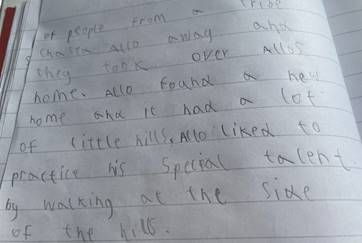 of people from a tribe
chased Allo away and
they took over Allos
home. Allo found a new
home and it had a lot
of little hills, Allo liked to
practice his special talent
by walking at the side
of the hills.